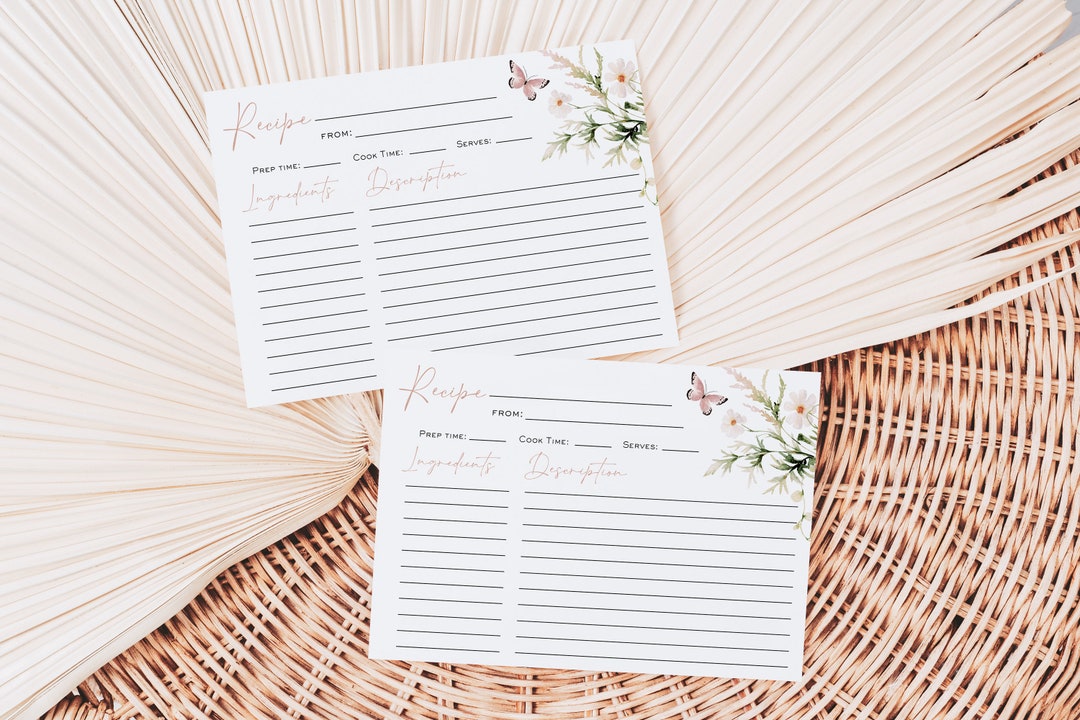 Recipe
FROM:
PREP TIME: COOK TIME: SERVES:
Ingredients Description
Recipe
FROM:
PREP TIME: COOK TIME: SERVES:
Ingredients Description